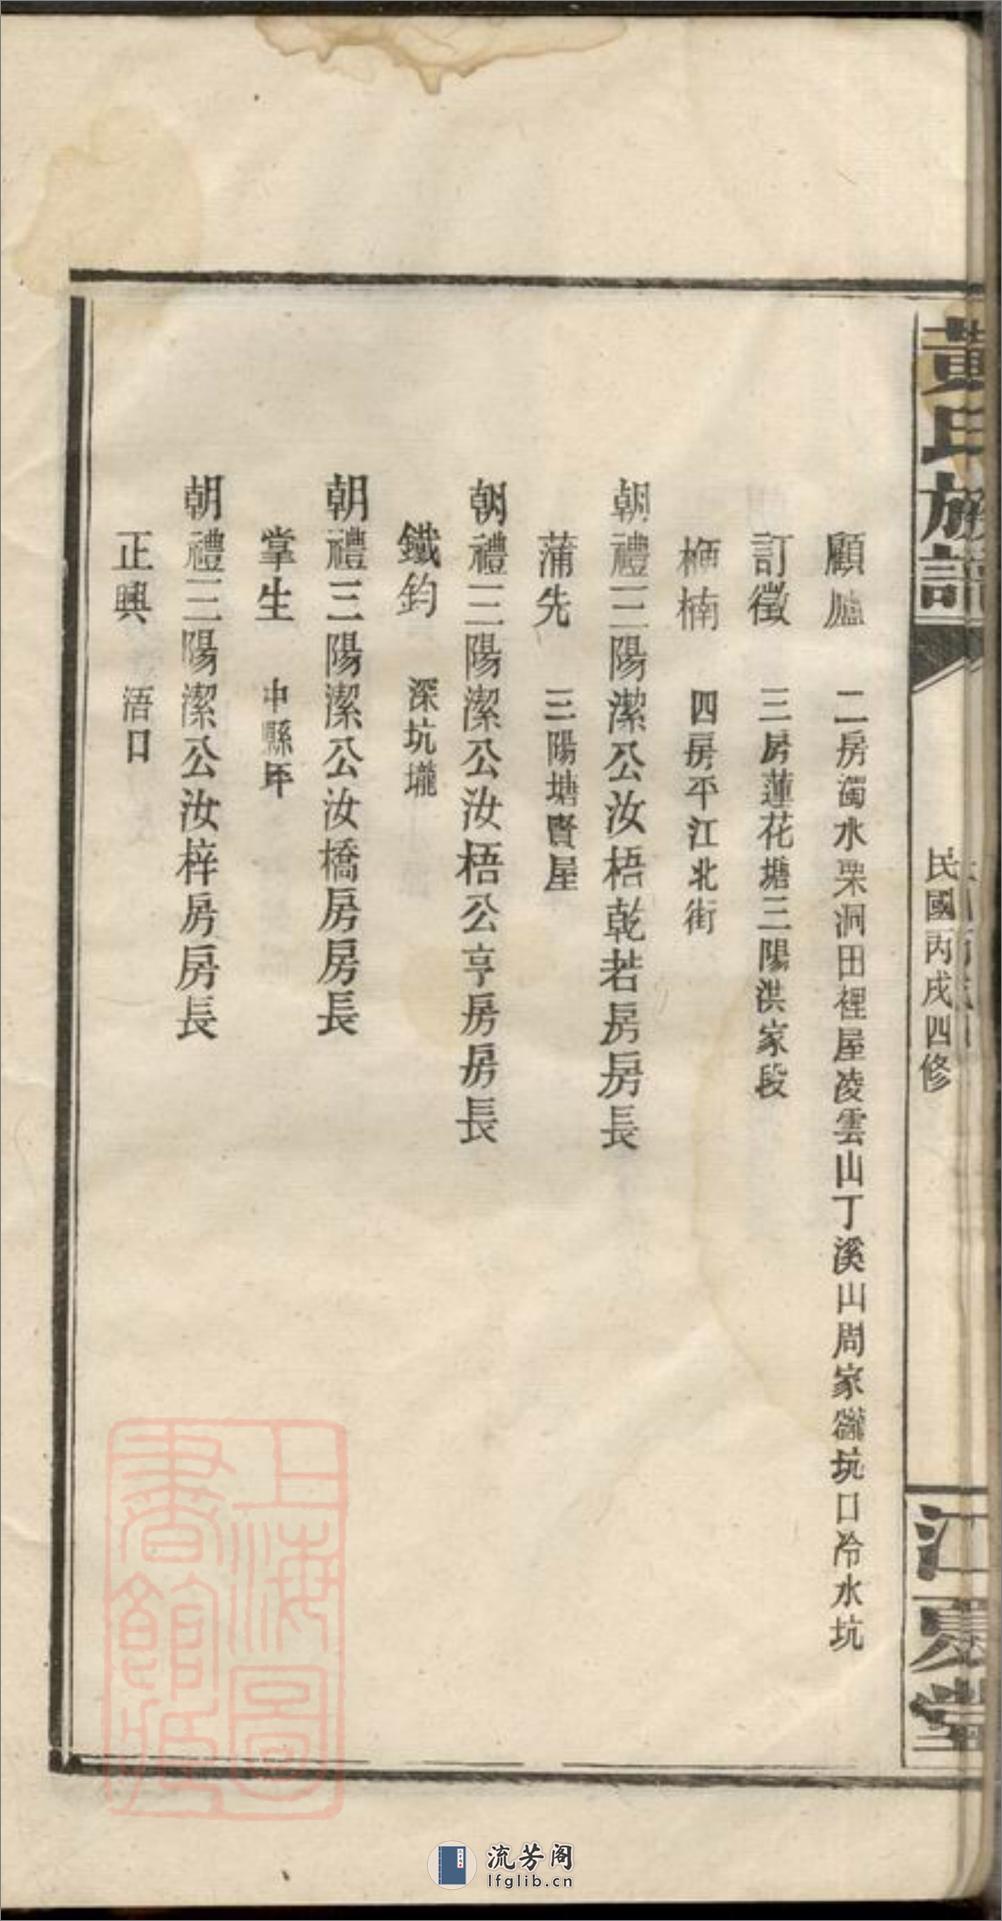 黃氏族譜
民國丙戌四修
江夏堂
顧廬 二房濁水栗洞田裡屋凌雲山丁溪山周家坑口冷水坑
訂徵 三房蓮花塘三陽洪家段
楠 四房平江北街
朝禮三陽潔公汝梧乾若房房長
蒲先 三陽塘賢屋
朝禮三陽潔公汝梧公亨房房長
鐵鈞 深坑壠
朝禮三陽潔公汝橋房房長
掌生 中縣坪
朝禮三陽潔公汝梓房房長
正興 浯口
上海圖
書館藏
流芳阁
lfglib.cn